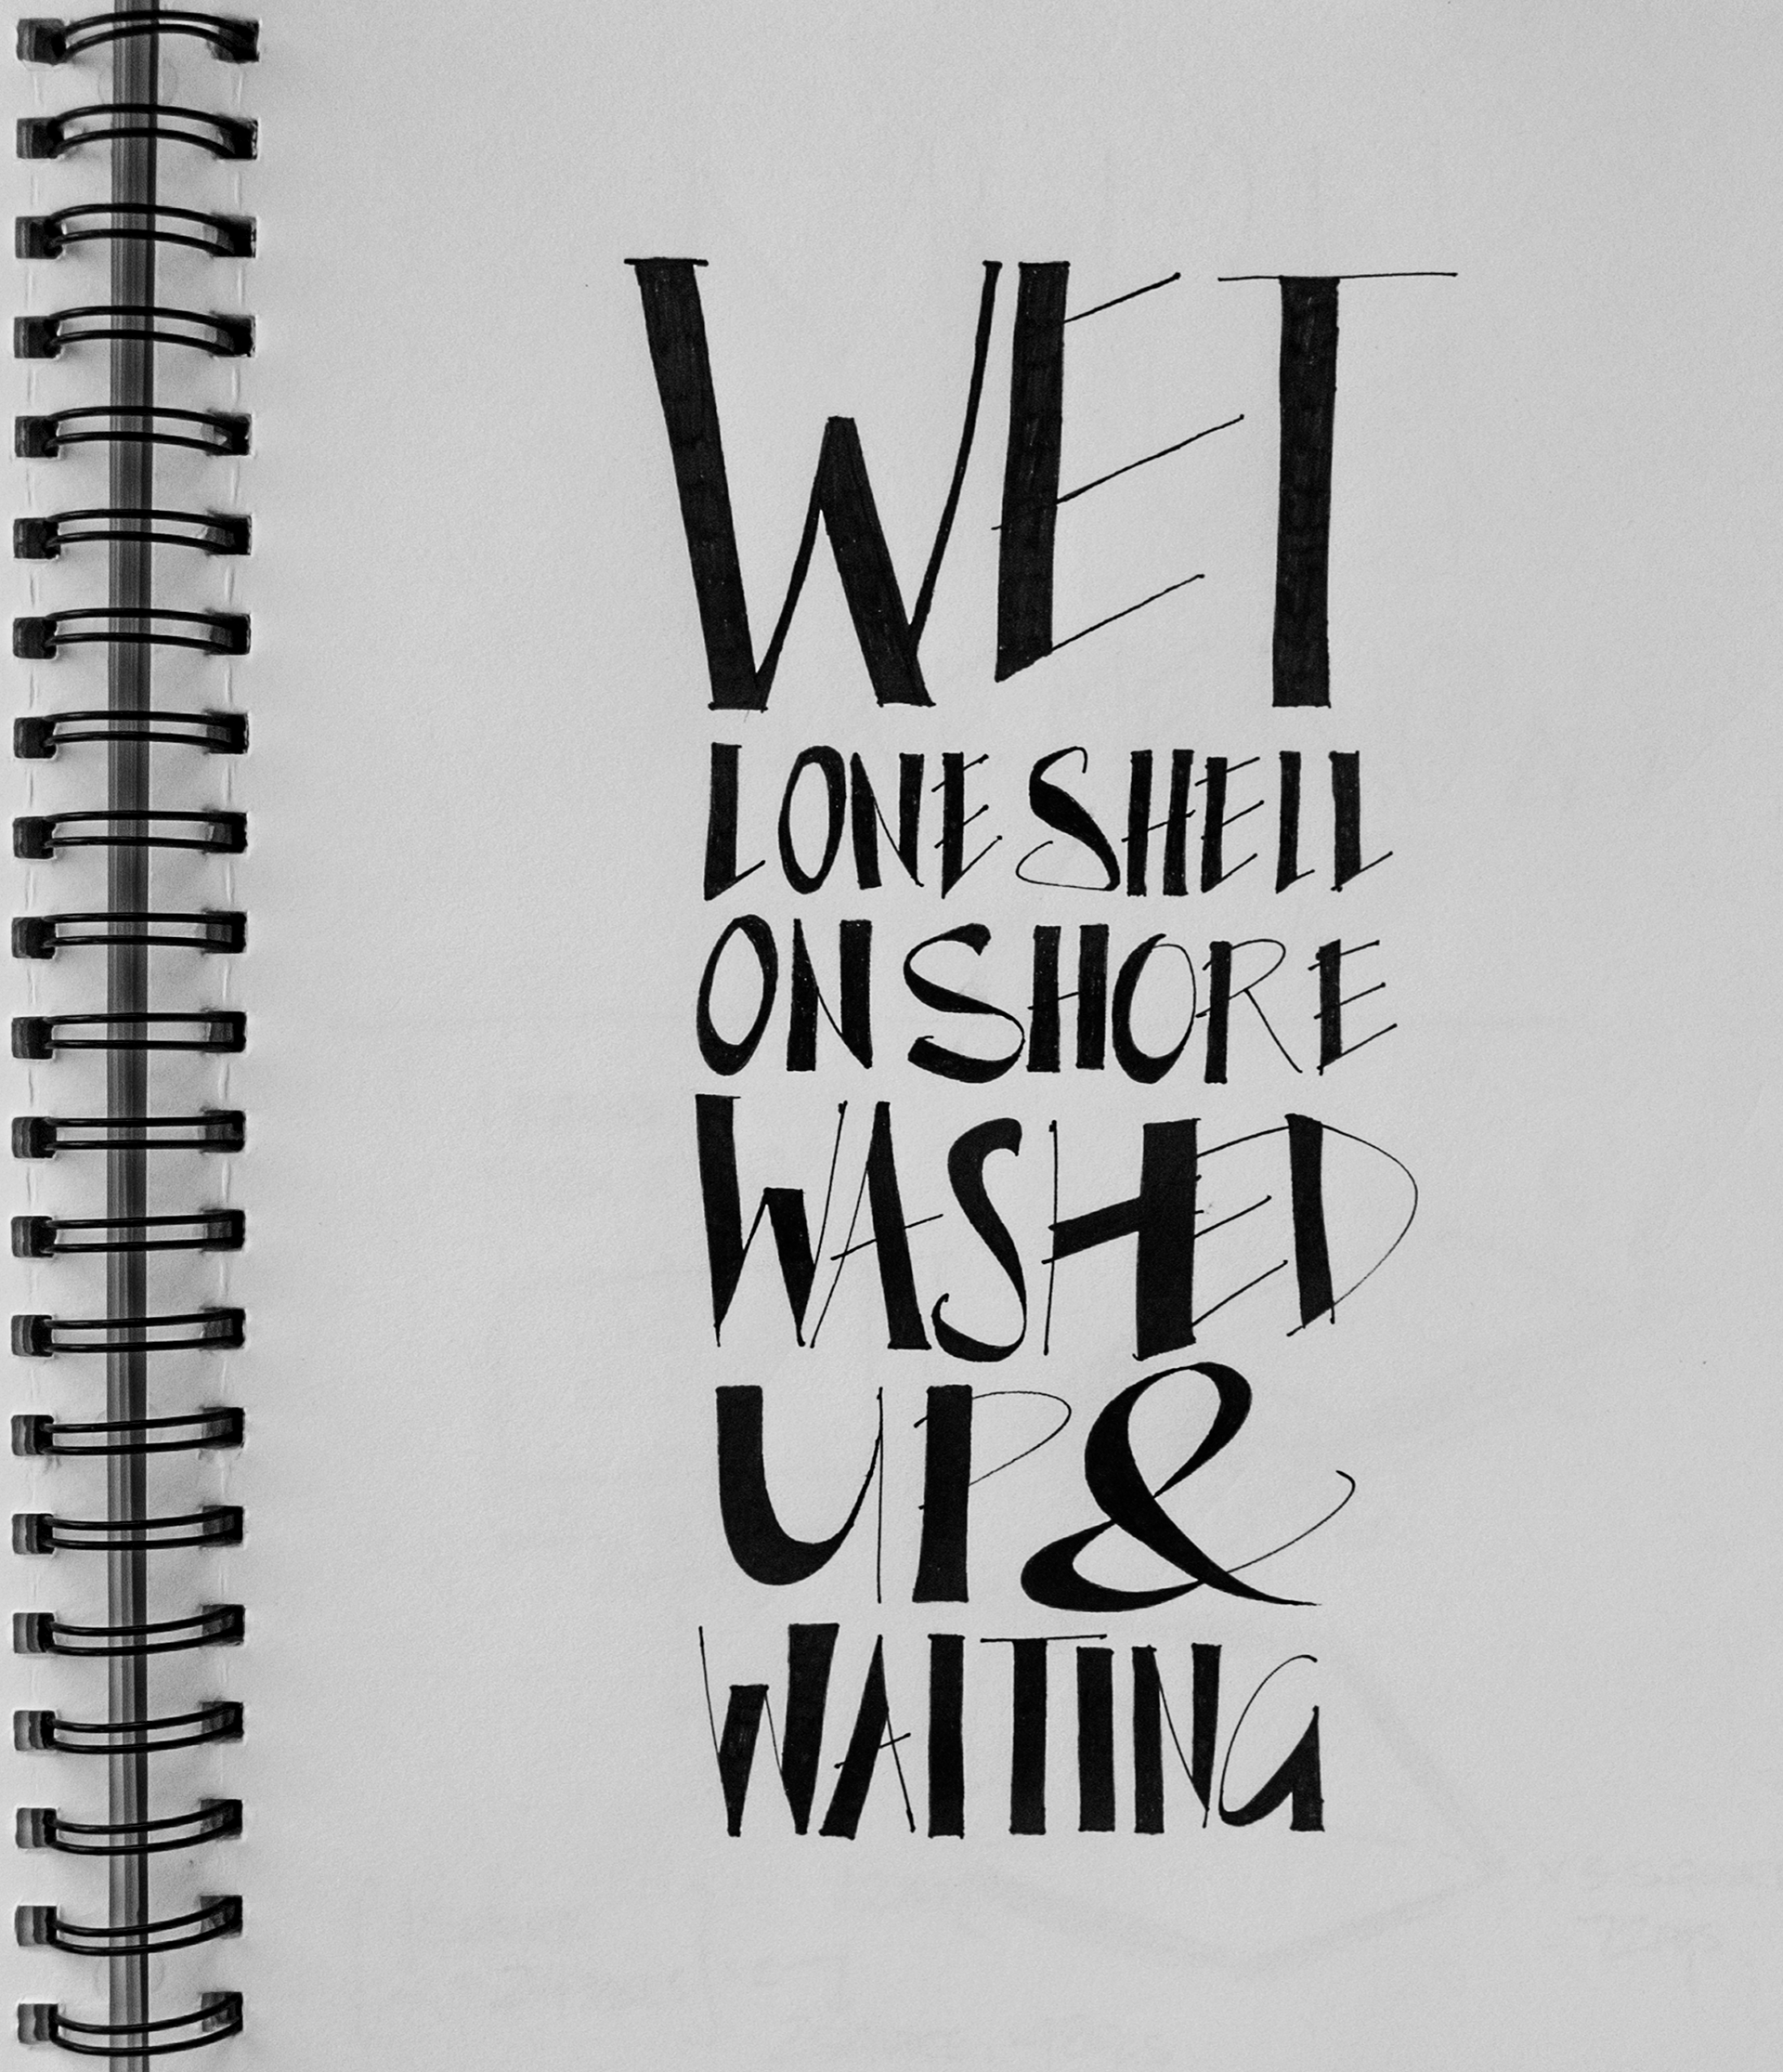 WET
LONE SHELL
ON SHORE
WASHED
UP &
WAITING